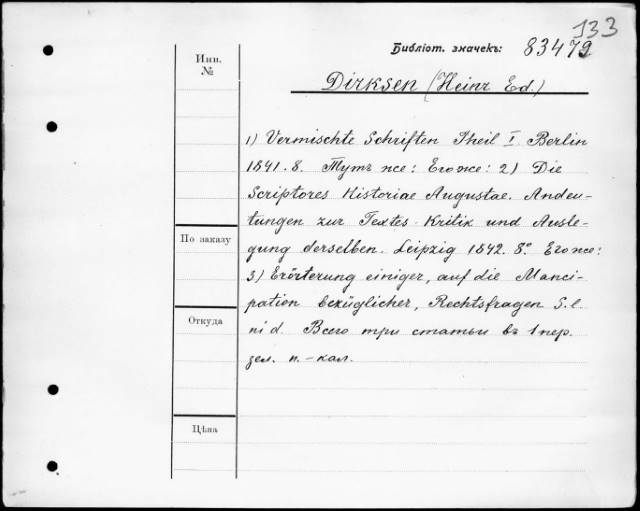 133
Библіот. значекъ: 83479
Инв.
№
Dirksen (Heinr Ed.)
1) Vermischte Schriften Theil I. Berlin
1841. 8. Тутъ же: Его же: 2) Die
Scriptores Historiae Augustae. Andeu-
tungen zur Textes-Kritik und Ausle-
По заказу
gung derselben. Leipzig 1842. 8º. Его же:
3) Erörterung einiger, auf die Manci-
pation bezüglicher, Rechtsfragen S. l.
Откуда
ni d. Всего три статьи въ 1 пер.
зел. п.-кал.
Цѣна